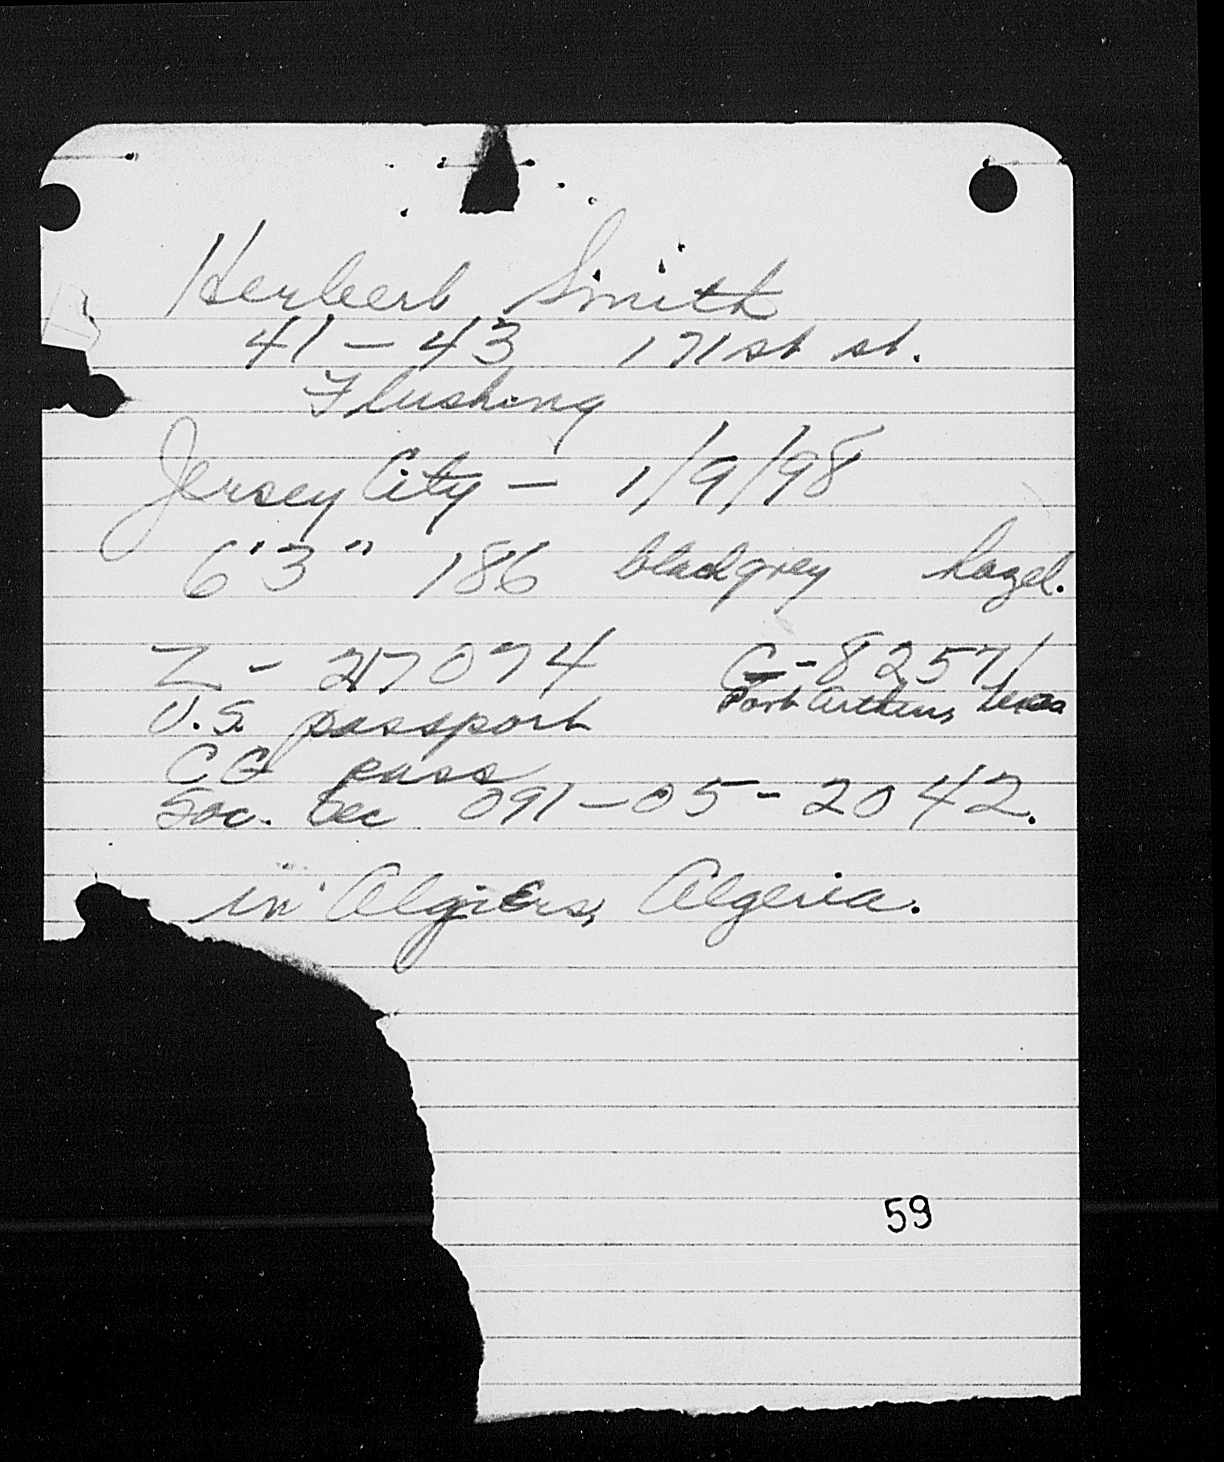 Herbert Smith
41-43 171st st.
Flushing
Jersey City - 1/9/98
6'3" 186 blackgrey hazel.
Z - 217074 C-82571
U.S. passport Port Arthur, Texas
CG pass
Soc. Sec 091-05-2042.
in Algiers, Algeria.
59